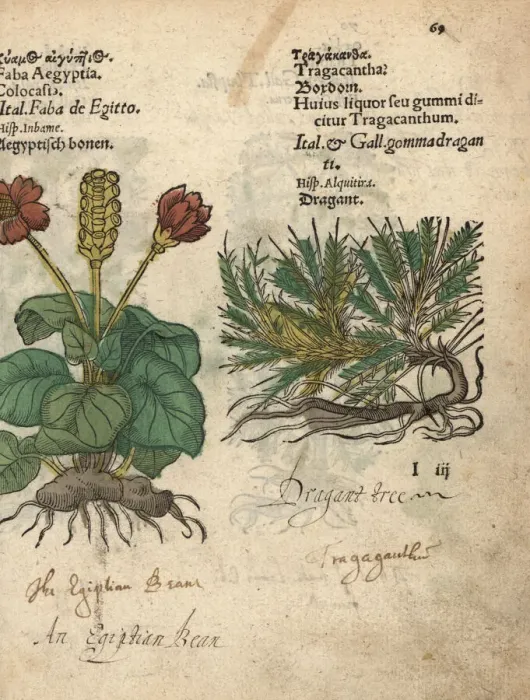 69
κύαμος αἰγύπτιος.
Faba Aegyptia.
Colocasia.
Ital. Faba de Egitto.
Hisp. Inhame.
Aegyptisch bonen.
Τραγάκανθα.
Tragacantha:
Bordoin.
Huius liquor seu gummi di-
citur Tragacanthum.
Ital. & Gall. gomma dragan
ti.
Hisp. Alquitira.
Dragant.
I iij
Dragant tree
Tragaganthũ
The Egiptian Beane
An Egiptian Bean